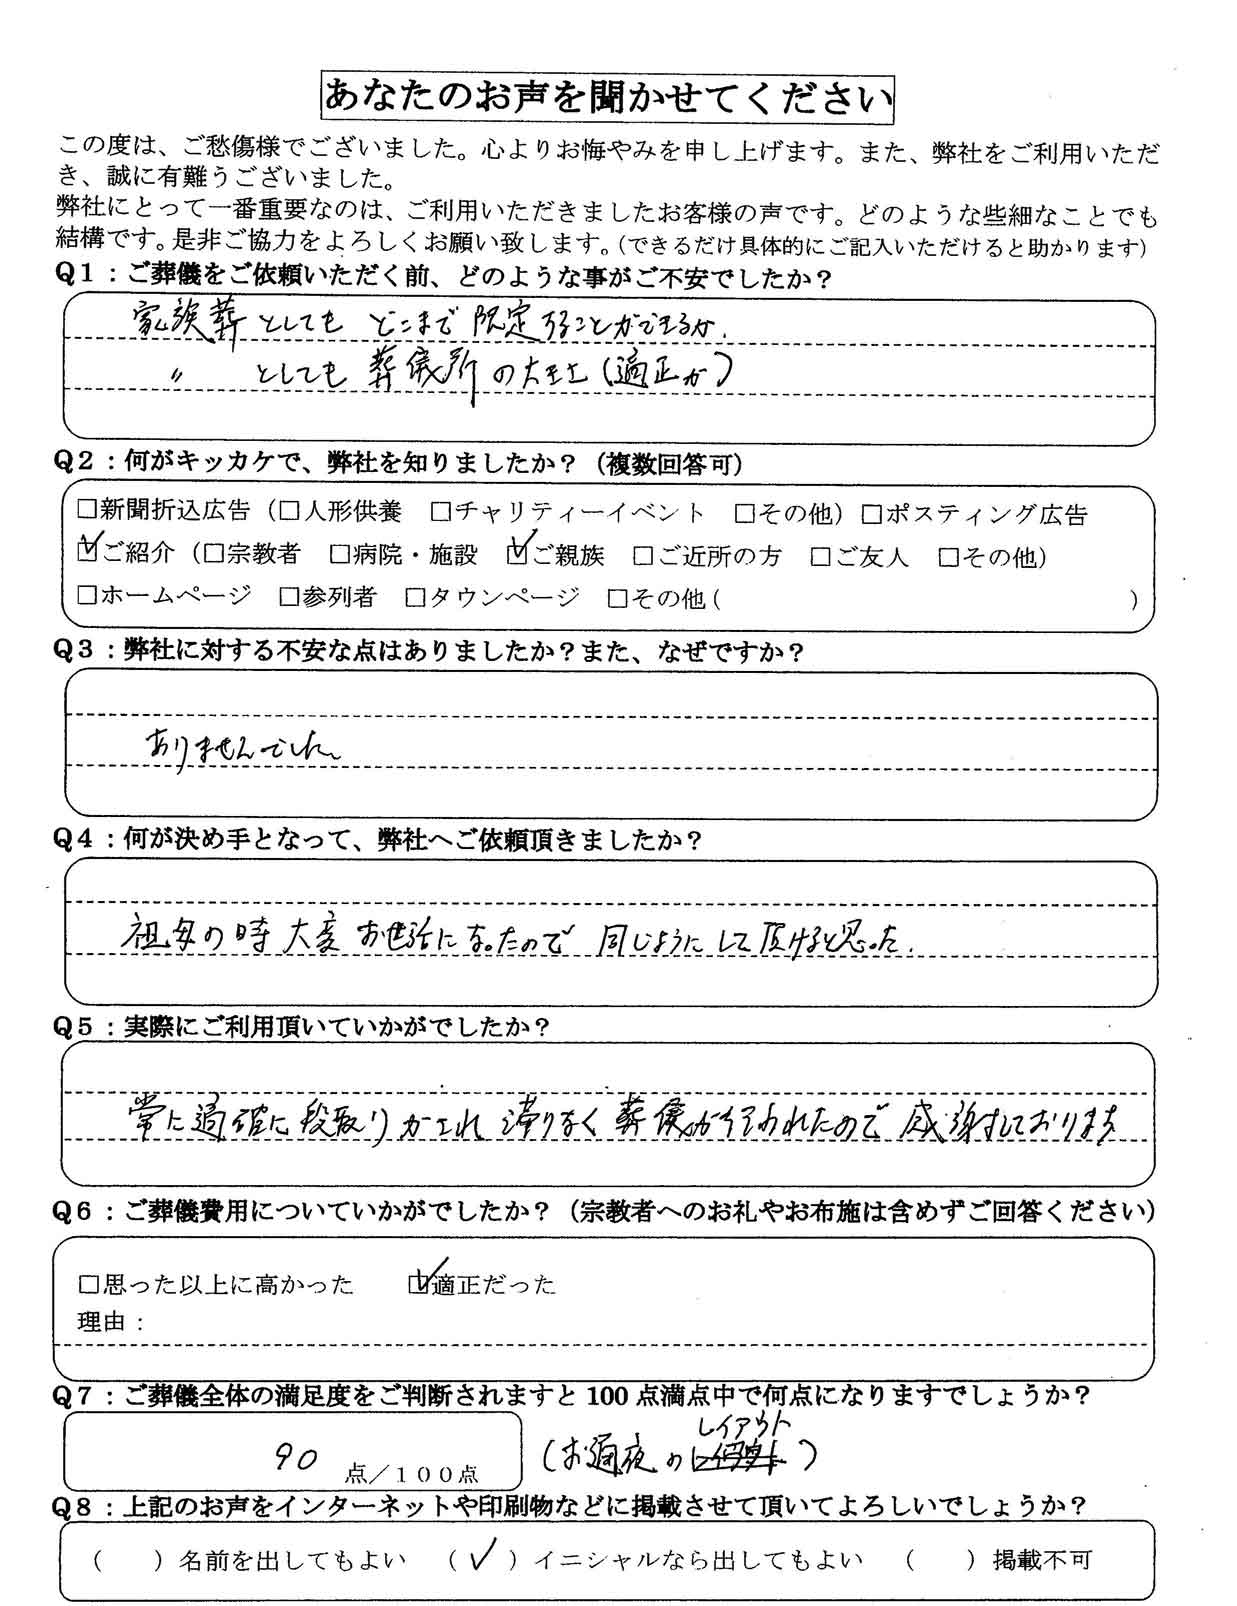 あなたのお声を聞かせてください
この度は、ご愁傷様でございました。心よりお悔やみを申し上げます。また、弊社をご利用いただ
き、誠に有難うございました。
弊社にとって一番重要なのは、ご利用いただきましたお客様の声です。どのような些細なことでも
結構です。是非ご協力をよろしくお願い致します。（できるだけ具体的にご記入いただけると助かります）
Q1：ご葬儀をご依頼いただく前、どのような事がご不安でしたか？
家族葬としても どこまで限定することができるか.
〃 としても葬儀所の大きさ（適正か）
Q2：何がキッカケで、弊社を知りましたか？（複数回答可）
□新聞折込広告（□人形供養 □チャリティーイベント □その他）□ポスティング広告
☑ご紹介（□宗教者 □病院・施設 ☑ご親族 □ご近所の方 □ご友人 □その他）
□ホームページ □参列者 □タウンページ □その他（ ）
Q3：弊社に対する不安な点はありましたか？また、なぜですか？
ありませんでした
Q4：何が決め手となって、弊社へご依頼頂きましたか？
祖母の時大変お世話になったので 同じようにして頂けると思った.
Q5：実際にご利用頂いていかがでしたか？
常に適確に段取りがされ 滞りなく葬儀が行われたので感謝しております
Q6：ご葬儀費用についていかがでしたか？（宗教者へのお礼やお布施は含めずご回答ください）
□思った以上に高かった ☑適正だった
理由：
Q7：ご葬儀全体の満足度をご判断されますと100点満点中で何点になりますでしょうか？
レイアウト
90 点／１００点 （お通夜の ）
Q8：上記のお声をインターネットや印刷物などに掲載させて頂いてよろしいでしょうか？
（ ）名前を出してもよい （✓）イニシャルなら出してもよい （ ）掲載不可